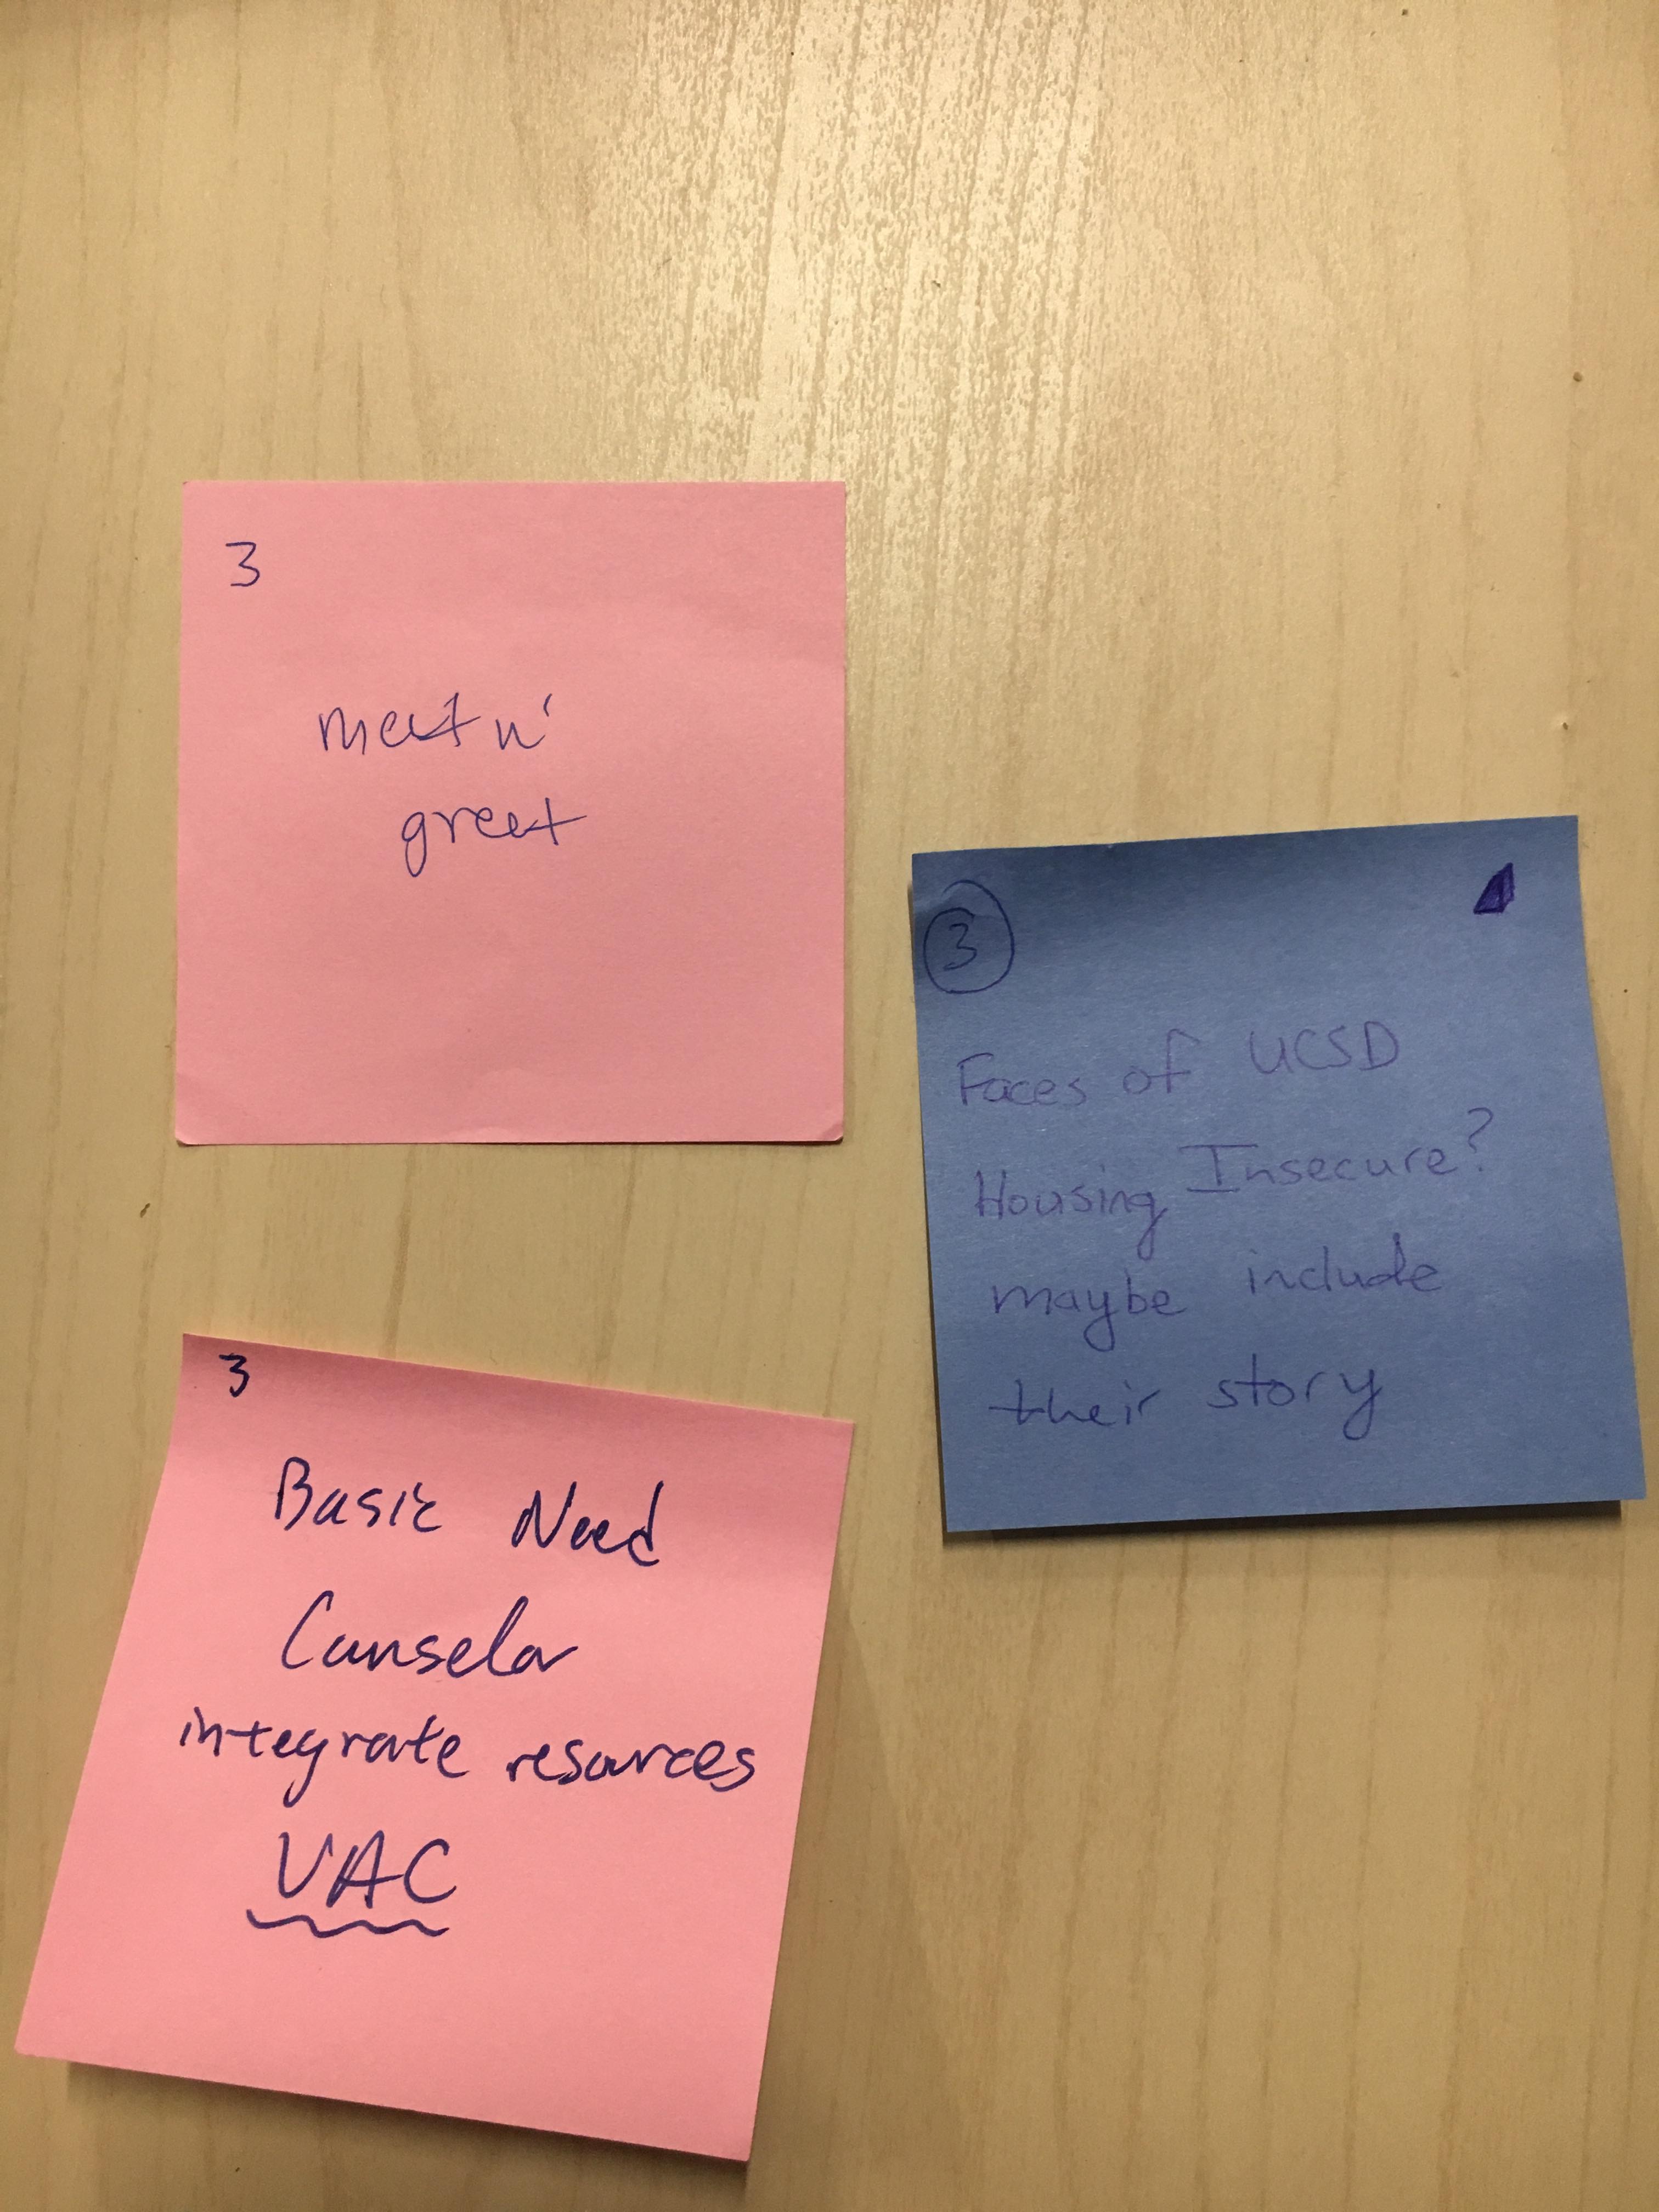 3
meet n'
greet
3
Faces of UCSD
Housing Insecure?
maybe include
their story
3
Basic Need
Counselor
integrate resources
VAC